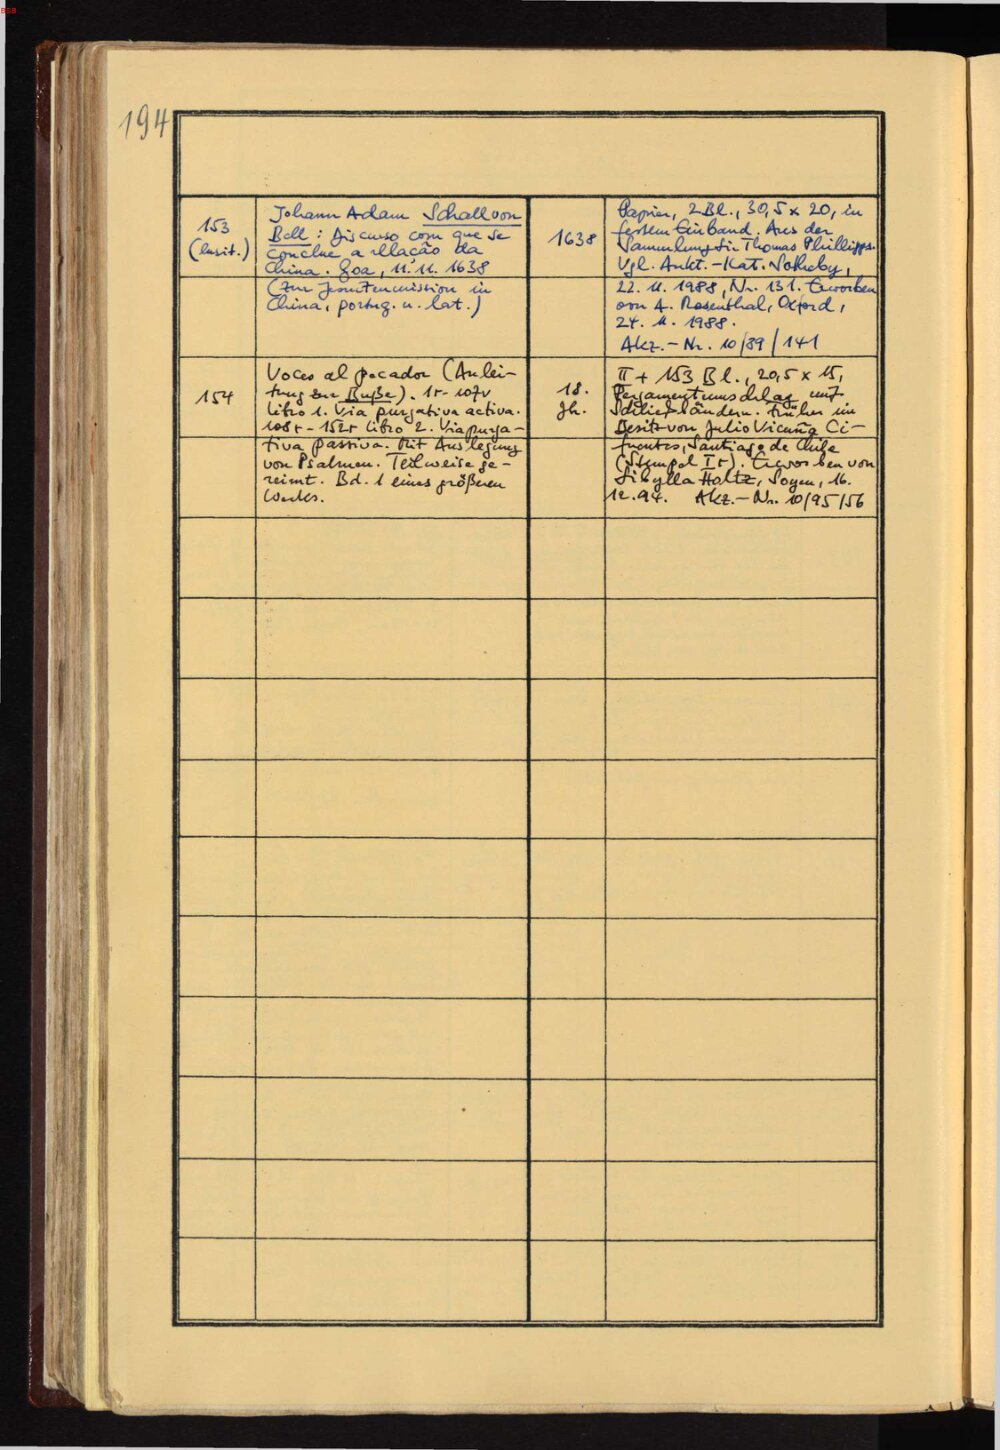 BSB
194
153
(lusit.)
Johann Adam Schall von
Bell: Discurso com que se
conclue a rllação da
China. Goa, 11.11. 1638
(Zur Jesuitenmission in
China, portug. u. lat.)
1638
Papier, 2 Bl., 30,5 x 20, in
festem Einband. Aus der
Sammlung Sir Thomas Phillipps.
Vgl. Aukt.-Kat. Sotheby,
22. 11. 1988, Nr. 131. Erworben
von A. Rosenthal, Oxford,
24. 11. 1988.
Akz.-Nr. 10/89/141
154
Voces al pecador (Anlei-
tung zur Buße). 1r-107v
Libro 1. Via purgativa activa.
108r-152r Libro 2. Via purga-
tiva passiva. Mit Auslegung
von Psalmen. Teilweise ge-
reimt. Bd. 1 eines größeren
Werks.
18.
Jh.
II + 153 Bl., 20,5 x 15,
Pergamentumschlag mit
Schließbändern. Früher im
Besitz von Julio Vicuña Ci-
fuentes, Santiago de Chile
(Stempel Ir). Erworben von
Sibylla Haltz, Soyen, 16.
12.94. Akz.-Nr. 10/95/56